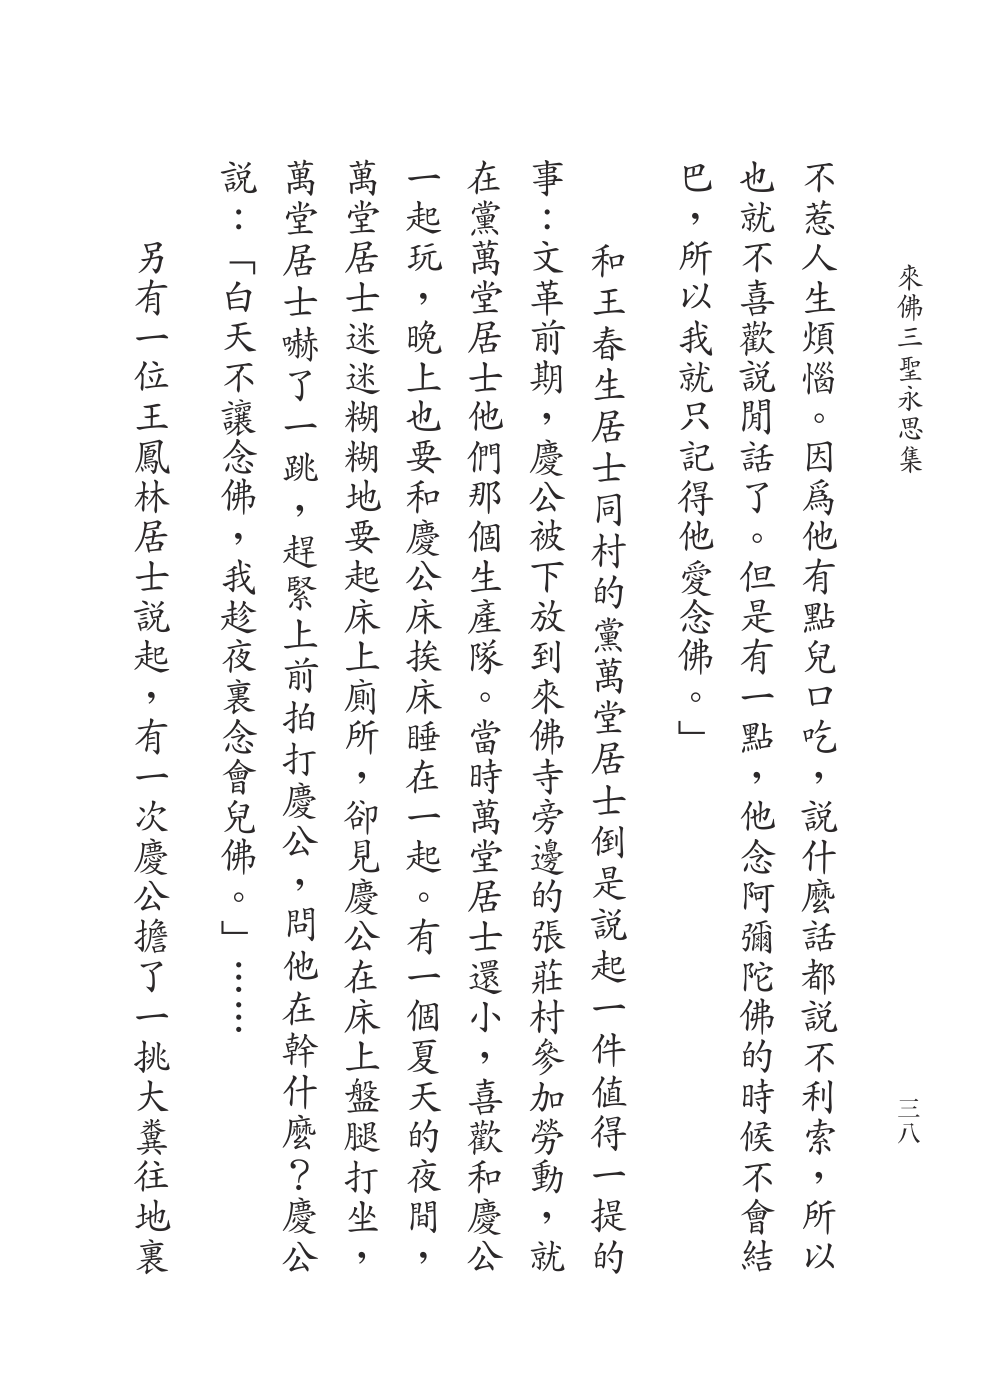 來佛三聖永思集
三八
不惹人生煩惱。因爲他有點兒口吃，說什麼話都說不利索，所以
也就不喜歡說閒話了。但是有一點，他念阿彌陀佛的時候不會結
巴，所以我就只記得他愛念佛。」
和王春生居士同村的黨萬堂居士倒是說起一件值得一提的
事：文革前期，慶公被下放到來佛寺旁邊的張莊村參加勞動，就
在黨萬堂居士他們那個生產隊。當時萬堂居士還小，喜歡和慶公
一起玩，晚上也要和慶公床挨床睡在一起。有一個夏天的夜間，
萬堂居士迷迷糊糊地要起床上廁所，卻見慶公在床上盤腿打坐，
萬堂居士嚇了一跳，趕緊上前拍打慶公，問他在幹什麼？慶公
說：「白天不讓念佛，我趁夜裏念會兒佛。」……
另有一位王鳳林居士說起，有一次慶公擔了一挑大糞往地裏